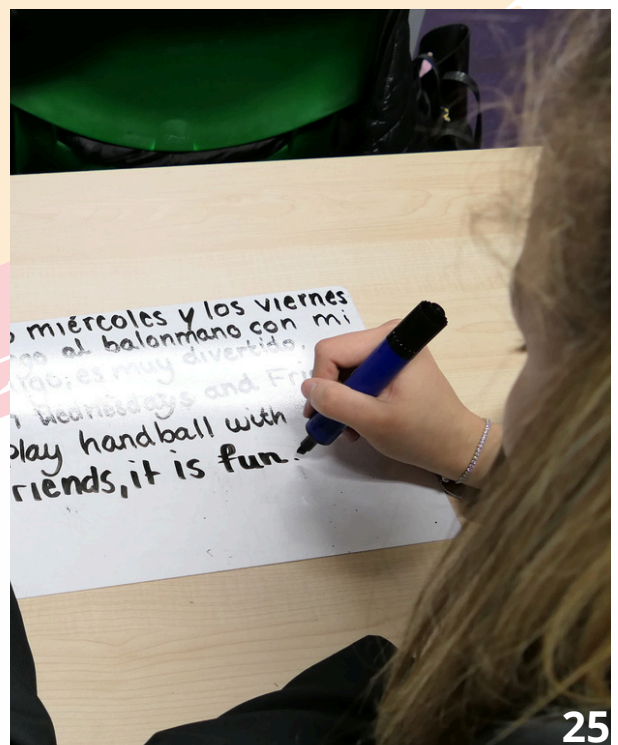 miércoles y los viernes
go al balonmano con mi
es muy divertido.
Wednesdays and Fri
play handball with
riends, it is fun.
25